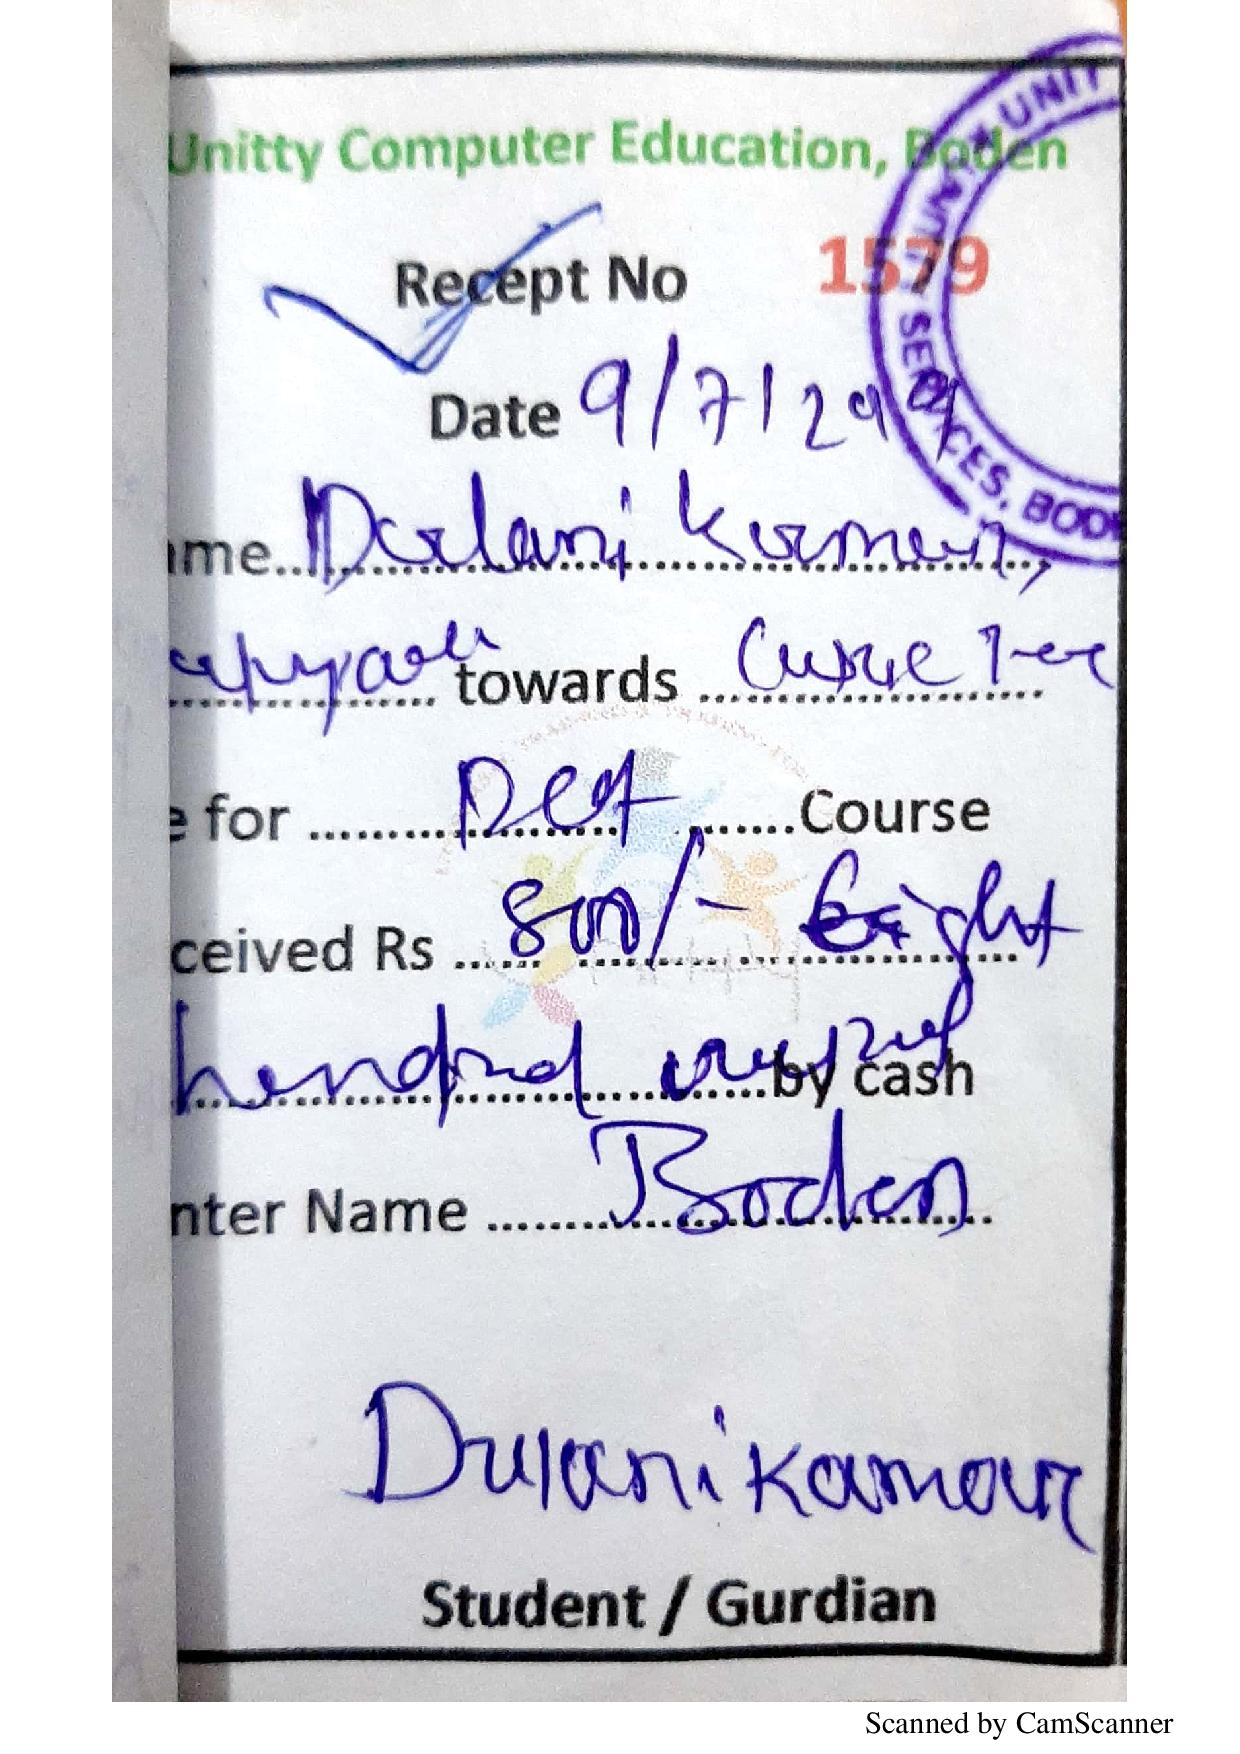 Unitty Computer Education, Boden
Recept No 1579
Date 9/7/29
ame Dulani kumar,
towards Curse Fee
e for DCA Course
ceived Rs 800/- Eight
hendred by cash
nter Name Boden
Dulanikamour
Student / Gurdian
UNIT
SERVICES, BODE
Scanned by CamScanner